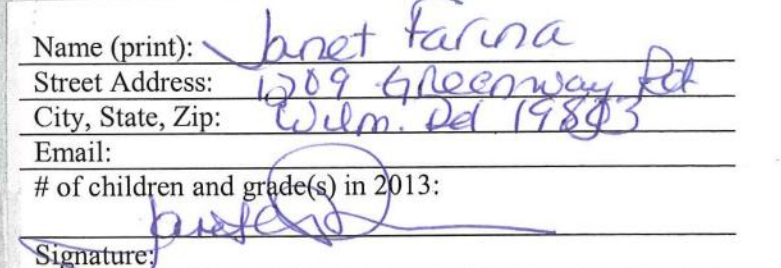 Name (print): Janet Farina
Street Address: 1209 Greenway Rd
City, State, Zip: Wilm. Del 19803
Email:
# of children and grade(s) in 2013:
Signature: